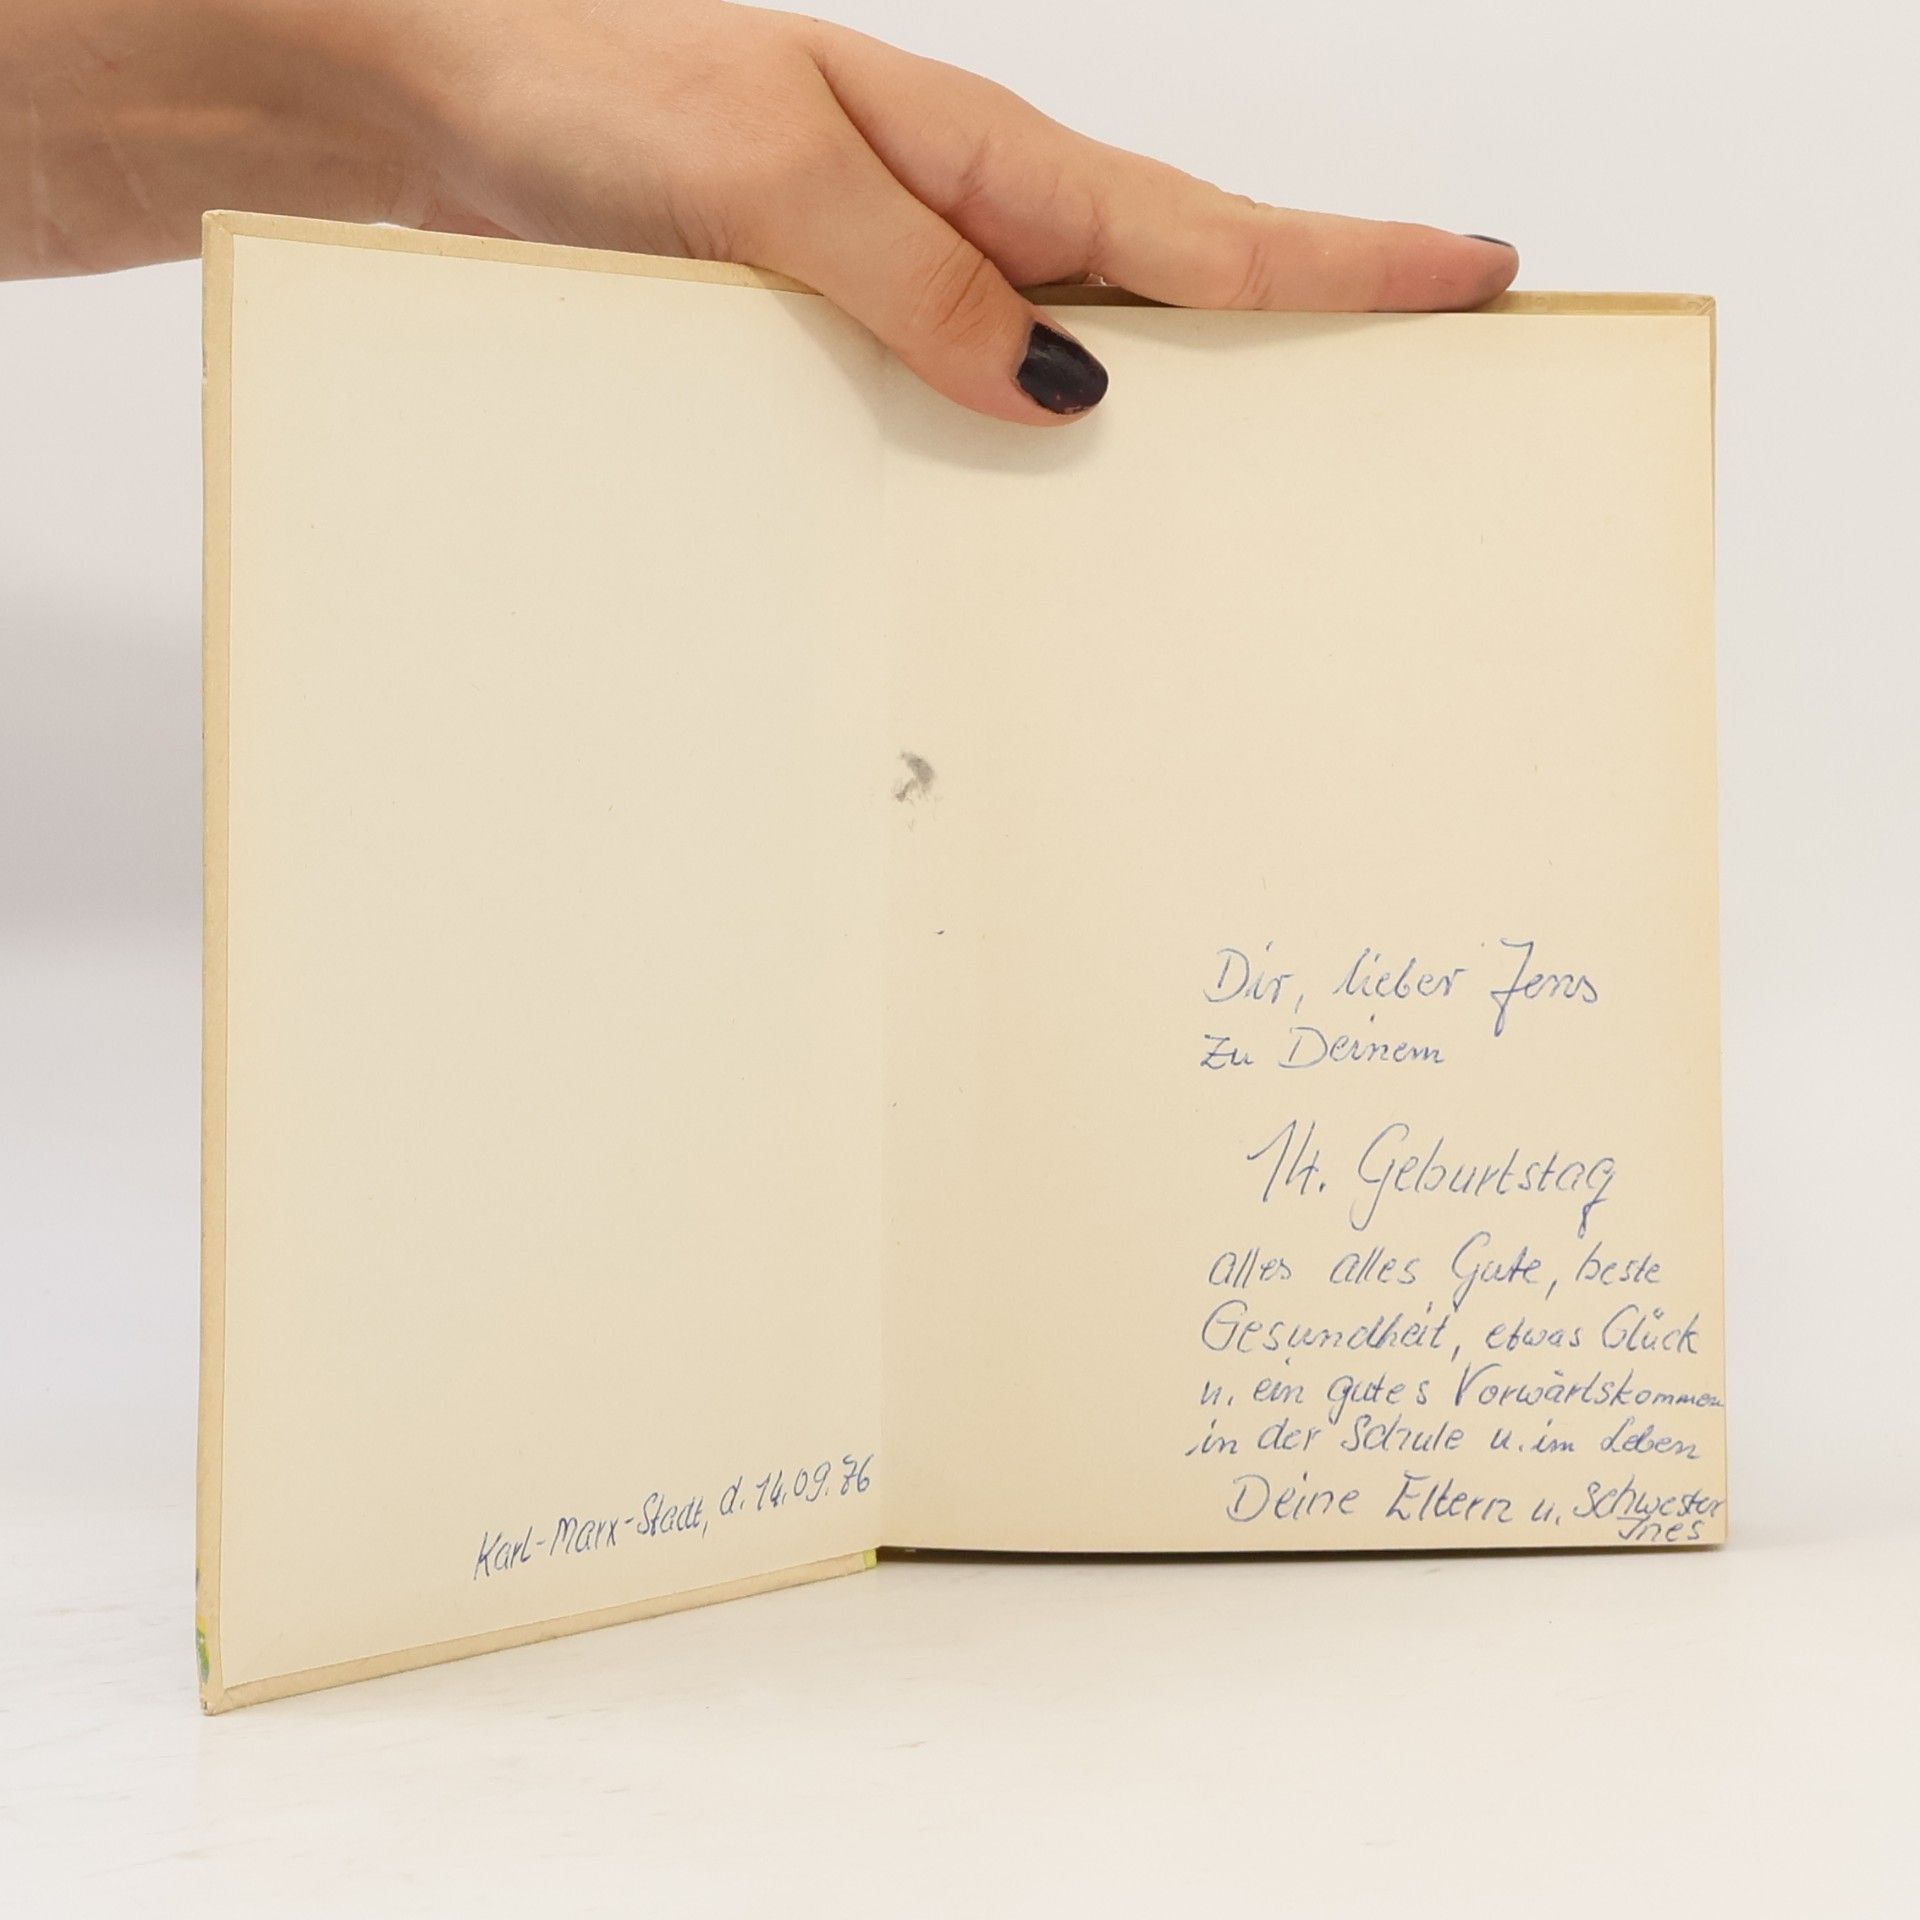 Karl-Marx-Stadt, d. 14.09.76
Dir, lieber Jens
zu Deinem
14. Geburtstag
alles alles Gute, beste
Gesundheit, etwas Glück
u. ein gutes Vorwärtskommen
in der Schule u. im Leben
Deine Eltern u. Schwester
Ines